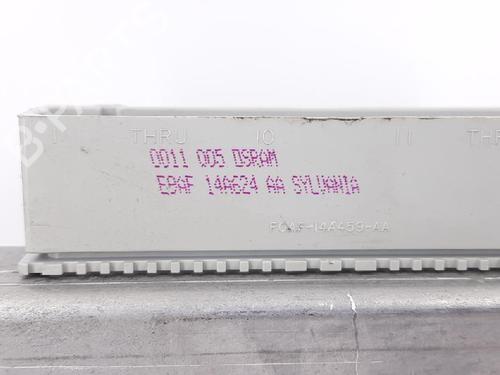 THRU 10 11 THR
0011 005 OSRAM
EBAF 14A624 AA SYLVANIA
B-PARTS